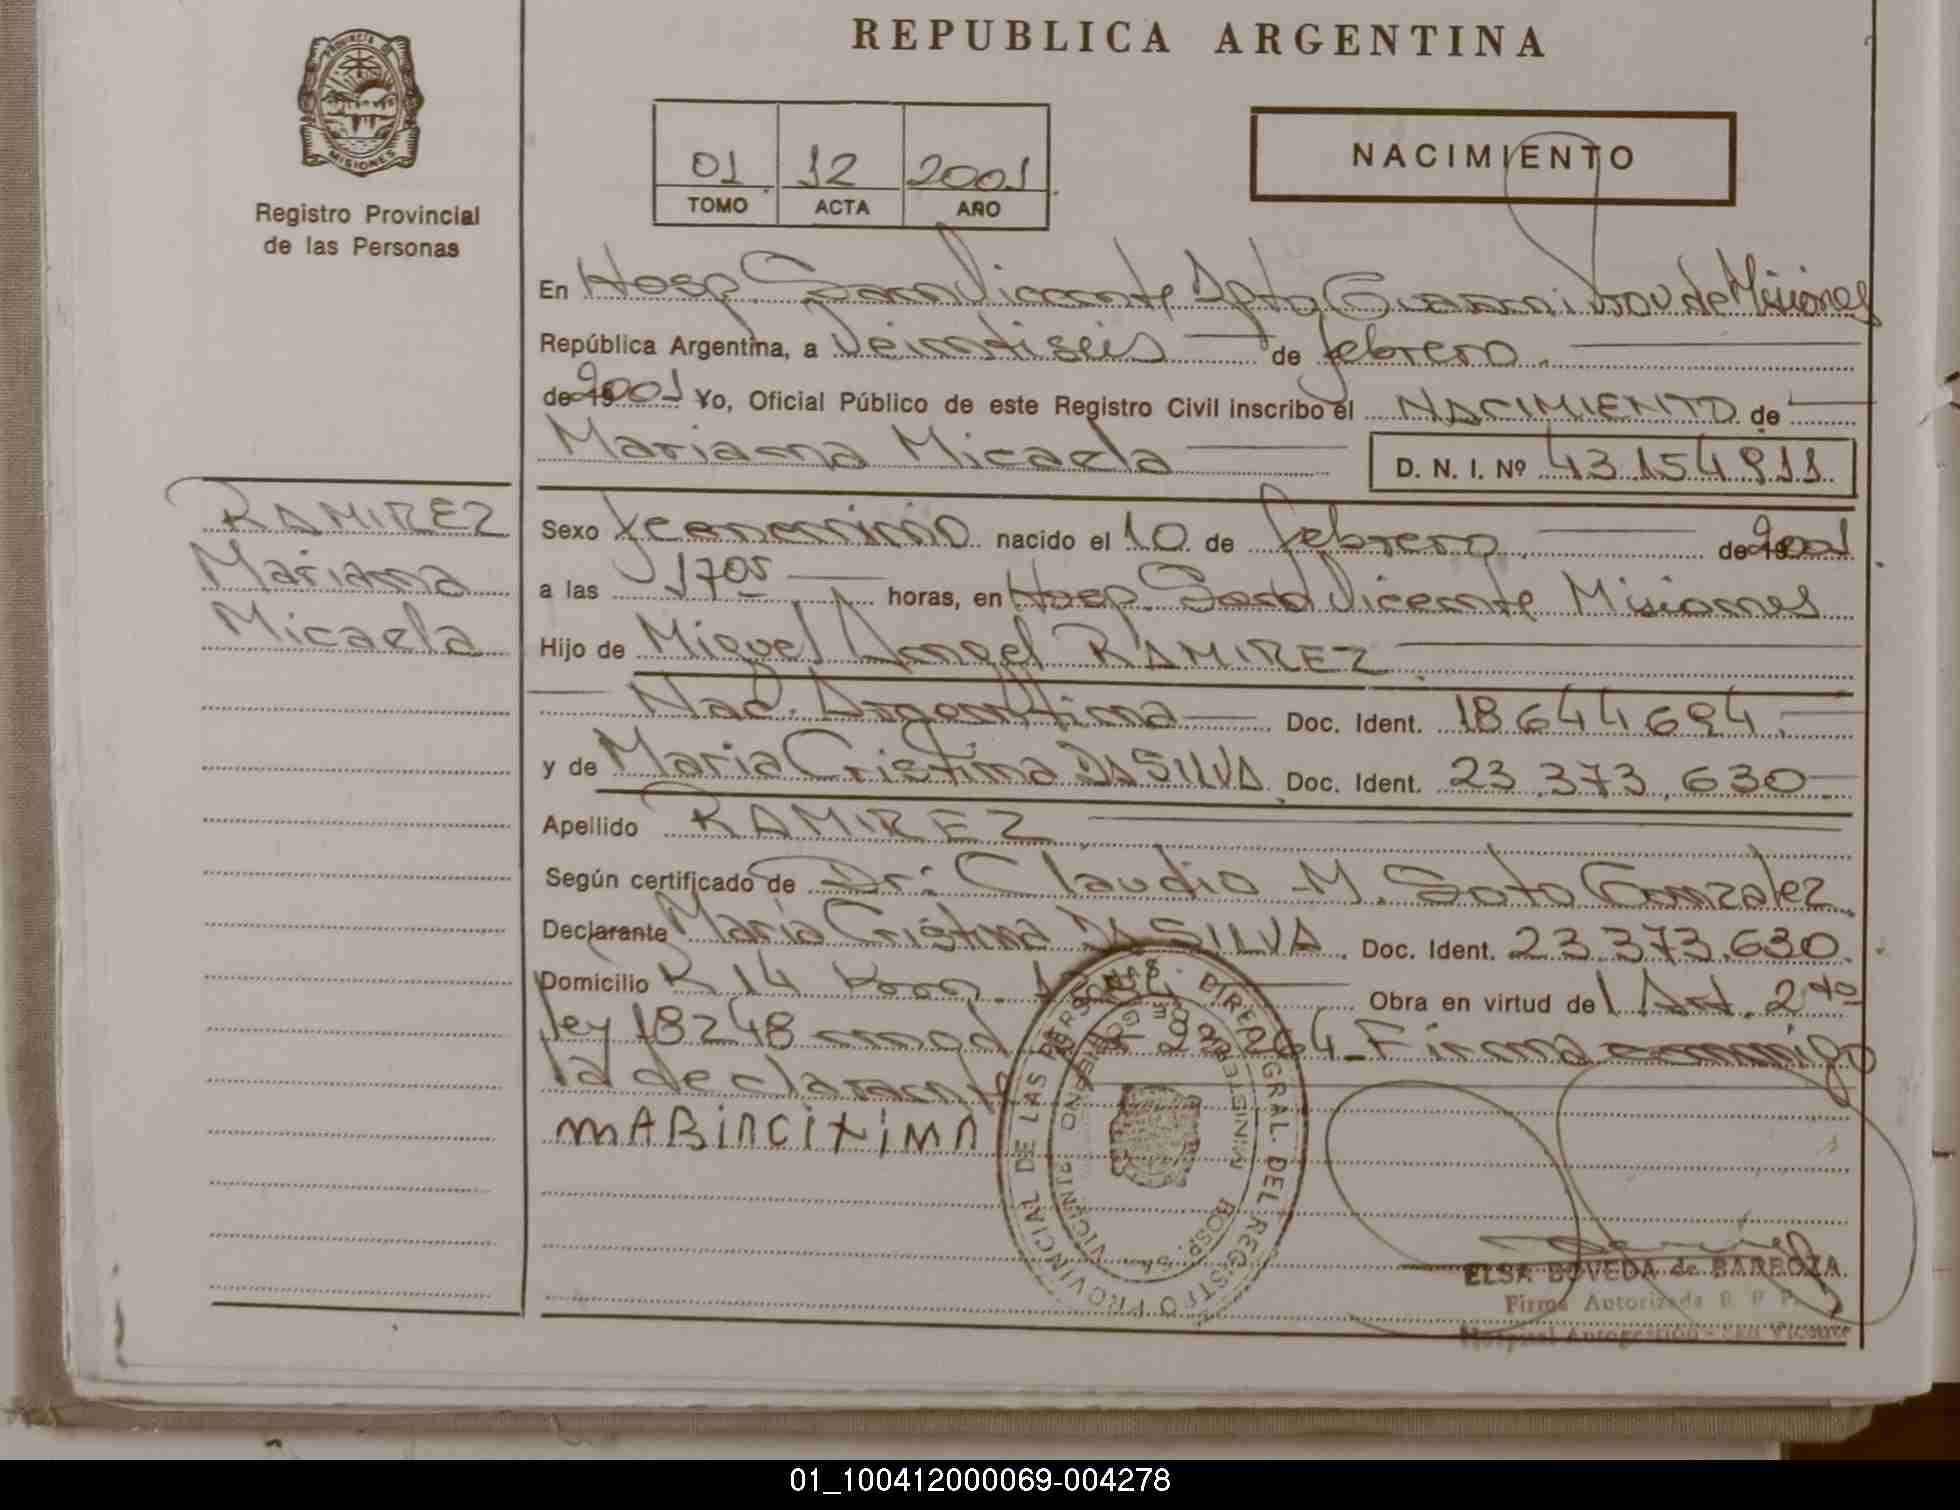 REPUBLICA ARGENTINA
PROVINCIA DE
MISIONES
Registro Provincial
de las Personas
01 12 2001
TOMO ACTA AÑO
NACIMIENTO
En Hosp. San Vicente Dpto Guarani Prov de Misiones
República Argentina, a Veintiseis de febrero
de 19 2001 Yo, Oficial Público de este Registro Civil inscribo el NACIMIENTO de
Mariana Micaela D. N. I. Nº 43.154.911
RAMIREZ
Mariana
Micaela
Sexo femenino nacido el 10 de febrero de 19 2001
a las 1705 horas, en Hosp. San Vicente Misiones
Hijo de Miguel Angel RAMIREZ
Nac. Argentina Doc. Ident. 18.644.694
y de Maria Cristina DA SILVA Doc. Ident. 23.373.630
Apellido RAMIREZ
Según certificado de Dr: Claudio M. Soto Gonzalez
Declarante Maria Cristina DA SILVA. Doc. Ident. 23.373.630
Domicilio R 14 Km. Obra en virtud del Art. 2do
ley 18248 23264 Firma conmigo
la declarante
mARiACiXiMA
DIREC. GRAL. DEL REGISTRO PROVINCIAL DE LAS PERSONAS
MINISTERIO DE GOBIERNO
HOSP. San VICENTE
ELSA BOVEDA de BARBOZA
Firma Autorizada R. P. P.
Hospital Autogestión - San Vicente
01_100412000069-004278